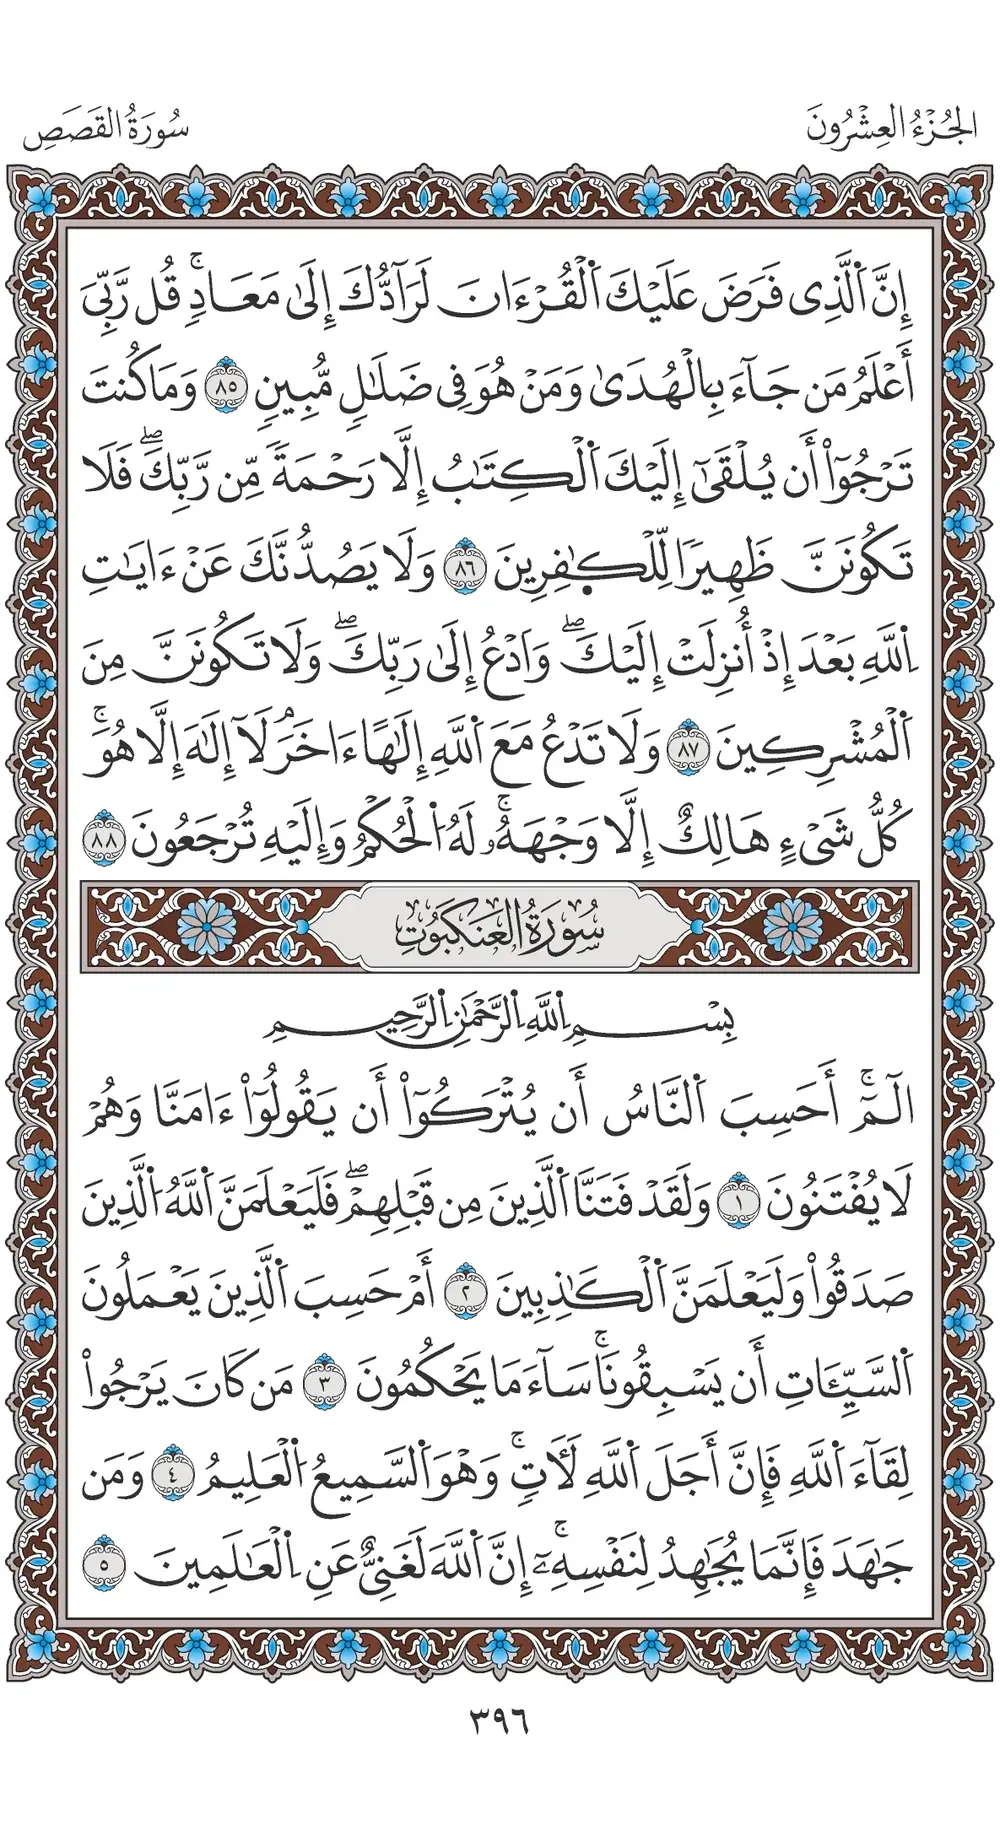 الجُزْءُ العِشْرُونَ
سُورَةُ القَصَصِ
إِنَّ اَ۬لَّذِى فَرَضَ عَلَيْكَ اَ۬لْقُرْءَانَ لَرَآدُّكَ إِلَىٰ مَعَادٍۖ قُل رَّبِّىَ
أَعْلَمُ مَن جَآءَ بِالْهُدَىٰ وَمَنْ هُوَ فِى ضَلَٰلٍ مُّبِينٍ ٨٥ وَمَا كُنتَ
تَرْجُوٓاْ أَن يُلْقَىٰٓ إِلَيْكَ اَ۬لْكِتَٰبُ إِلَّا رَحْمَةً مِّن رَّبِّكَۖ فَلَا
تَكُونَنَّ ظَهِيرًا لِّلْكٰٜفِرِينَ ٨٦ وَلَا يَصُدُّنَّكَ عَنْ ءَايَٰتِ
اِ۬للَّهِ بَعْدَ إِذْ أُنزِلَتْ إِلَيْكَۖ وَادْعُ إِلَىٰ رَبِّكَۖ وَلَا تَكُونَنَّ مِنَ
اَ۬لْمُشْرِكِينَ ٨٧ وَلَا تَدْعُ مَعَ اَ۬للَّهِ إِلَٰهًا ءَاخَرَۘ لَآ إِلَٰهَ إِلَّا هُوَۚ
كُلُّ شَىْءٍ هَالِكٌ إِلَّا وَجْهَهُۥۚ لَهُ اُ۬لْحُكْمُ وَإِلَيْهِ تُرْجَعُونَ ٨٨
سُورَةُ العَنكَبُوتِ
بِسْمِ اِ۬للَّهِ اِ۬لرَّحْمَٰنِ اِ۬لرَّحِيمِ
الٓمٓۚ أَحَسِبَ اَ۬لنَّاسُ أَن يُتْرَكُوٓاْ أَن يَقُولُوٓاْ ءَامَنَّا وَهُمْ
لَا يُفْتَنُونَ ١ وَلَقَدْ فَتَنَّا اَ۬لَّذِينَ مِن قَبْلِهِمْۖ فَلَيَعْلَمَنَّ اَ۬للَّهُ اُ۬لَّذِينَ
صَدَقُواْ وَلَيَعْلَمَنَّ اَ۬لْكَٰذِبِينَ ٢ أَمْ حَسِبَ اَ۬لَّذِينَ يَعْمَلُونَ
اَ۬لسَّيِّـَٔاتِ أَن يَسْبِقُونَاۚ سَآءَ مَا يَحْكُمُونَ ٣ مَن كَانَ يَرْجُواْ
لِقَآءَ اَ۬للَّهِ فَإِنَّ أَجَلَ اَ۬للَّهِ لَأٓتٍۚ وَهْوَ اَ۬لسَّمِيعُ اُ۬لْعَلِيمُ ٤ وَمَن
جَٰهَدَ فَإِنَّمَا يُجَٰهِدُ لِنَفْسِهِۦٓۚ إِنَّ اَ۬للَّهَ لَغَنِىٌّ عَنِ اِ۬لْعَٰلَمِينَ ٥
٣٩٦